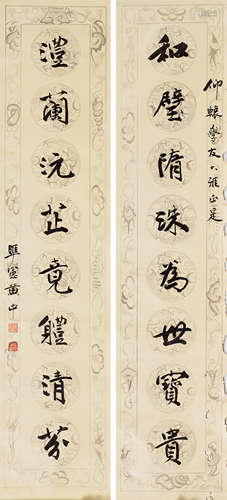 仰蘧學友大雅正是
和璧隋珠為世寶貴
澧蘭沅芷竟體清芬
黃中